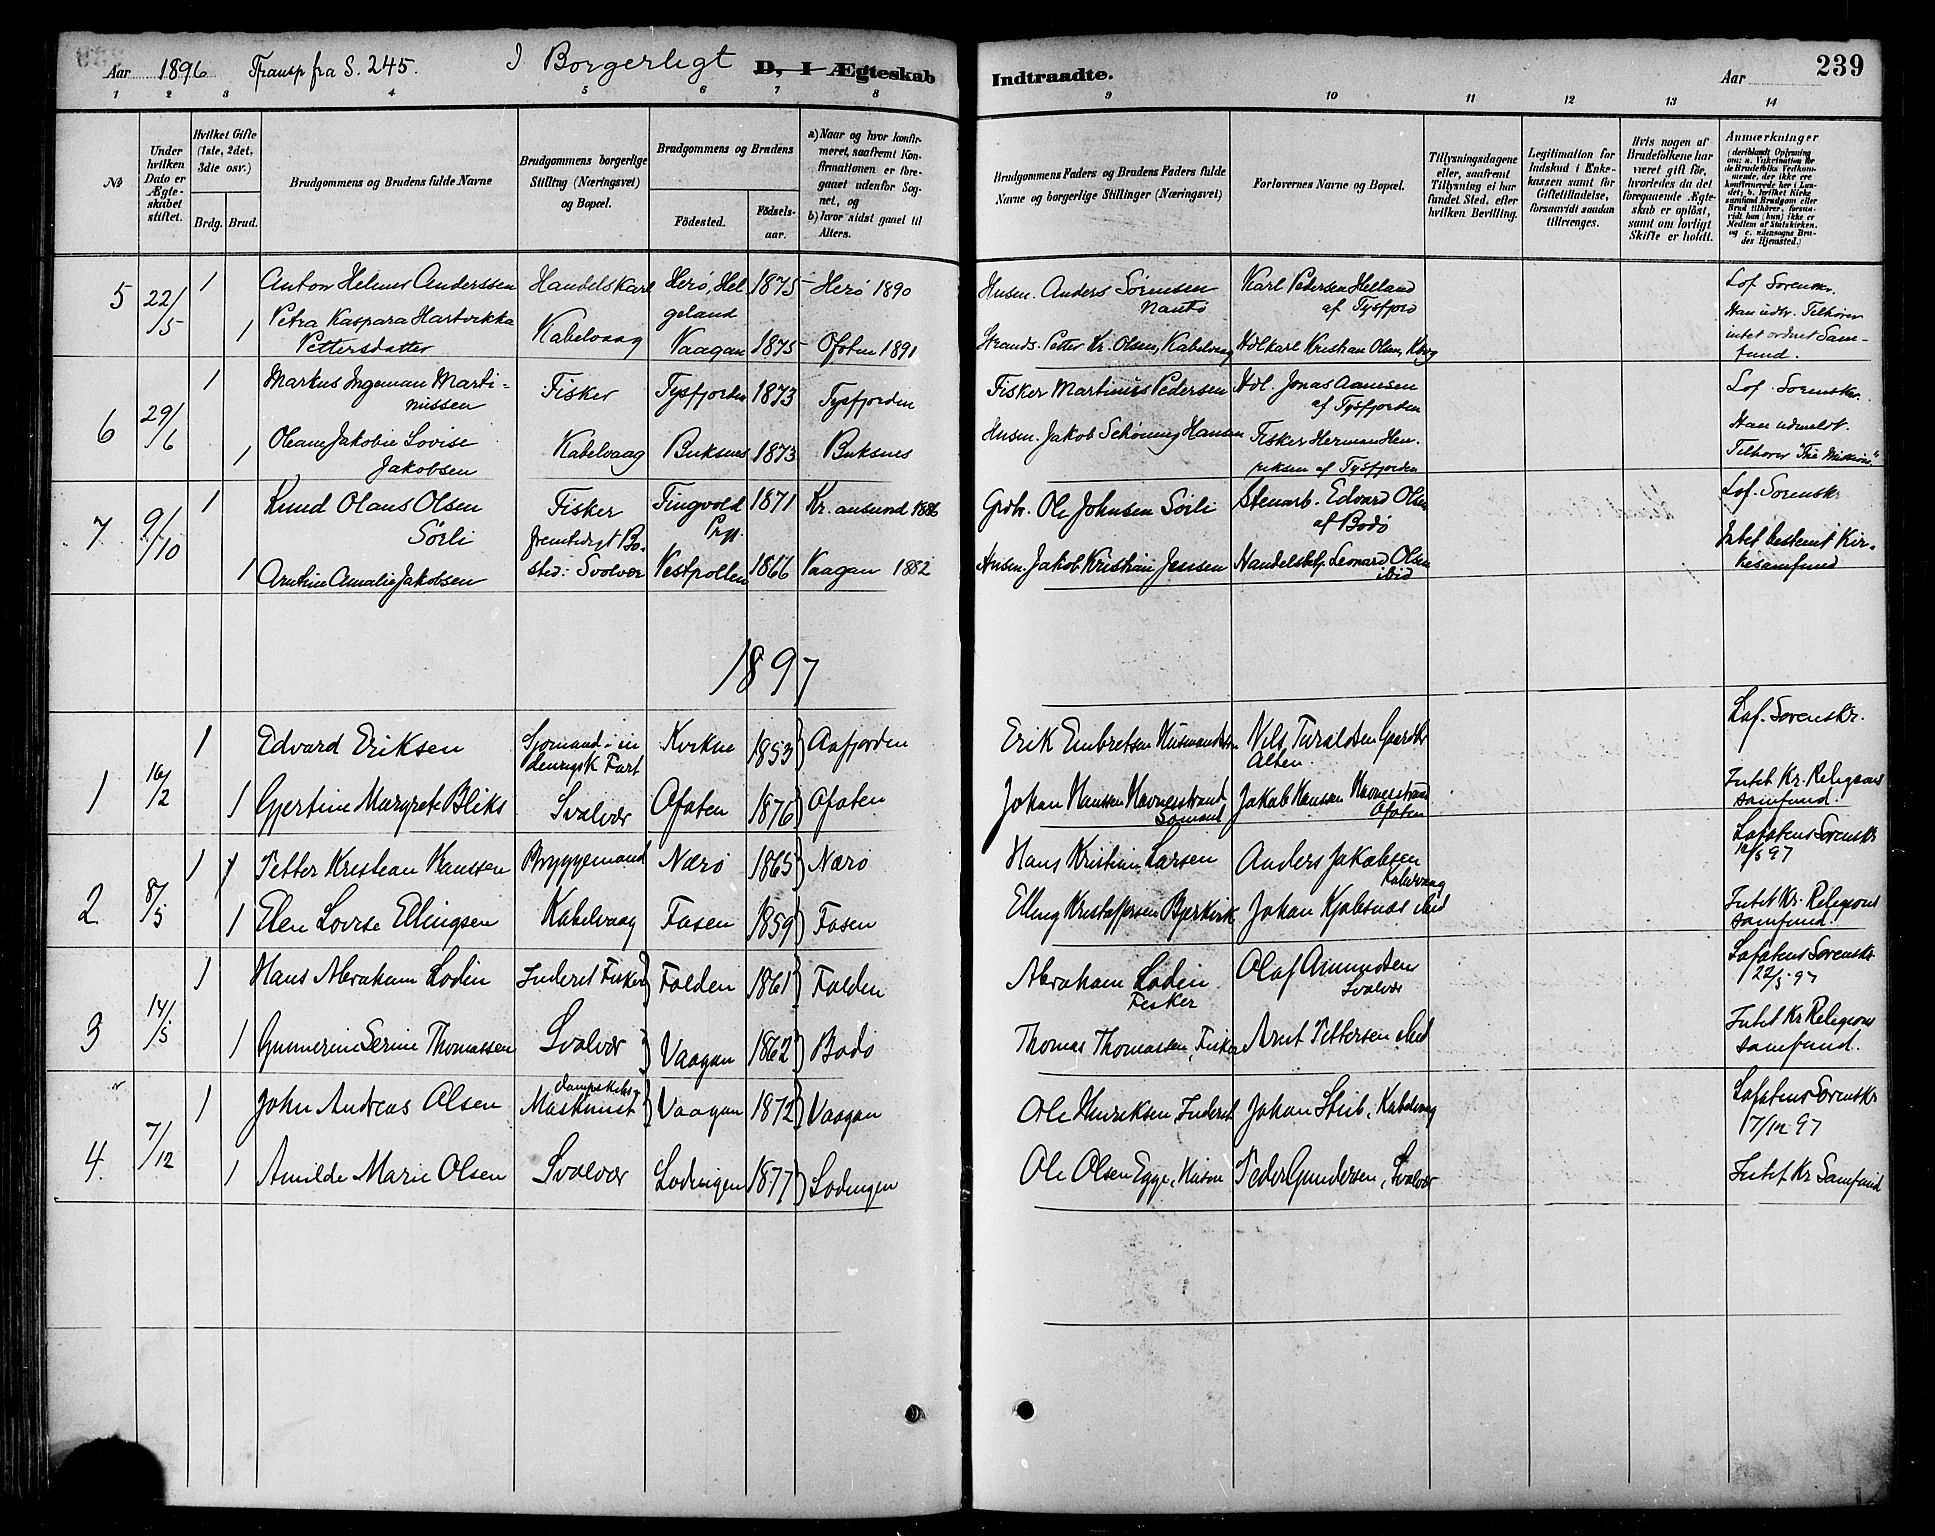 Aar 1896 Transp fra S. 245. I Borgerligt D, I Ægteskab Indtraadte. Aar 239
1 2 3 4 5 6 7 8 9 10 11 12 13 14
No
Under hvilken Dato er Ægteskabet stiftet.
Hvilket Gifte (1ste, 2det, 3die osv.)
Brdg. Brud.
Brudgommens og Brudens fulde Navne
Brudgommens borgerlige Stilling (Næringsvei) og Bopæl.
Brudgommens og Brudens
Fødested. Fødsels-aar.
a) Naar og hvor konfirmeret, saafremt Konfirmationen er foregaaet udenfor Sognet, og
b) hvor sidst gaaet til Alters.
Brudgommens Faders og Brudens Faders fulde Navne og borgerlige Stillinger (Næringsvei)
Forlovernes Navne og Bopæl.
Tillysningsdagene eller, saafremt Tillysning ei har fundet Sted, efter hvilken Bevilling.
Legitimation for Indskud i Enkekassen samt for Giftetilladelse, forsaavidt saadan tiltrænges.
Hvis nogen af Brudefolkene har været gift før, hvorledes da det foregaaende Ægteskab er opløst, samt om lovligt Skifte er holdt.
Anmærkninger
5 22/5 1 Anton Helmer Anderssen Handelskarl Herø, Hel 1875 Herø 1890 Husm. Anders Sørensen Karl Pedersen Helland Lof Sorenskr.
geland af Tysfjord Han udtr. Tilhører
1 Petra Kaspara Hartvikka Kabelvaag Vaagan 1875 Ofoten 1891 Strands. Petter Kr. Olsen, Kabelvaag Hdlkarl Kristian Olsen, Kbvg intet ordnet Sam-
Pettersdatter fund.
6 29/6 1 Markus Ingeman Marti- Fisker Tysfjorden 1873 Tysfjorden Fisker Martinus Pedersen Hdl. Jonas Aanesen Lof. Sorenskr.
nussen af Tysfjorden Han udmeldt.
1 Oleane Jakobie Lovise Kabelvaag Buksnes 1873 Buksnes Husm. Jakob Schøning Hansen Fisker Herman Hen- Tilhører "Fri Mission"
Jakobsen riksen af Tysfjorden
7 9/10 1 Knud Olaus Olsen Fisker Tingvold 1871 Kr.ansund 1886 Grdbr. Ole Johnsen Sørli Stenarb. Edvard Olsen Lof. Sorenskr.
Sørli fremtidigt Bo- Prgj. af Bodø Intet bestemt Kir-
1 Arntine Amalie Jakobsen sted: Svolvær Vestpollen 1866 Vaagan 1882 Husm. Jakob Kristian Jensen Handelsbtj. Leonard Olsen kesamfund
ibid
1897
1 16/2 1 Edvard Eriksen Sjømand i in Kvikne 1853 Aafjorden Erik Embretsen Nils Lof. Sorenskr.
denrigsk Fart Alten.
1 Gjertine Margrete Bliks Svolvær Ofoten 1876 Ofoten Johan Hanssen Havnerstrand Jakob Hansen Havnerstrand Intet Kr. Religions
Ofoten samfund.
2 8/5 1 Petter Kristian Hanssen Bryggemand Nærø 1865 Nærø Hans Kristian Larsen Anders Jakobsen Lofotens Sorenskr
Kabelvaag 12/5 97
1 Elen Lovise Ellingsen Kabelvaag Fosen 1859 Fosen Elling Kristoffersen Johan Kjølsnæs ibid Intet Kr. Religions
samfund.
3 14/5 1 Hans Abraham Lodin Inderst Fisker Folden 1861 Folden Abraham Lodin Olaf Amundsen Lofotens Sorenskr.
Fisker Svolvær 22/5 97
1 Gunnerine Serine Thomassen Svolvær Vaagan 1862 Bodø Thomas Thomassen, Fisker Arnt Pettersen ibid Intet Kr Religions
samfund.
4. 7/12 1 John Andreas Olsen Dampskibs- Maskinist Vaagan 1872 Vaagan Ole Henriksen Inderst Johan Stub, Kabelvaag Lofotens Sorenskr
7/12 97
1 Amilde Marie Olsen Svolvær Lodingen 1877 Lodingen Ole Olsen Egge, Husm Peder Gundersen, Svolvær Intet Kr Samfund